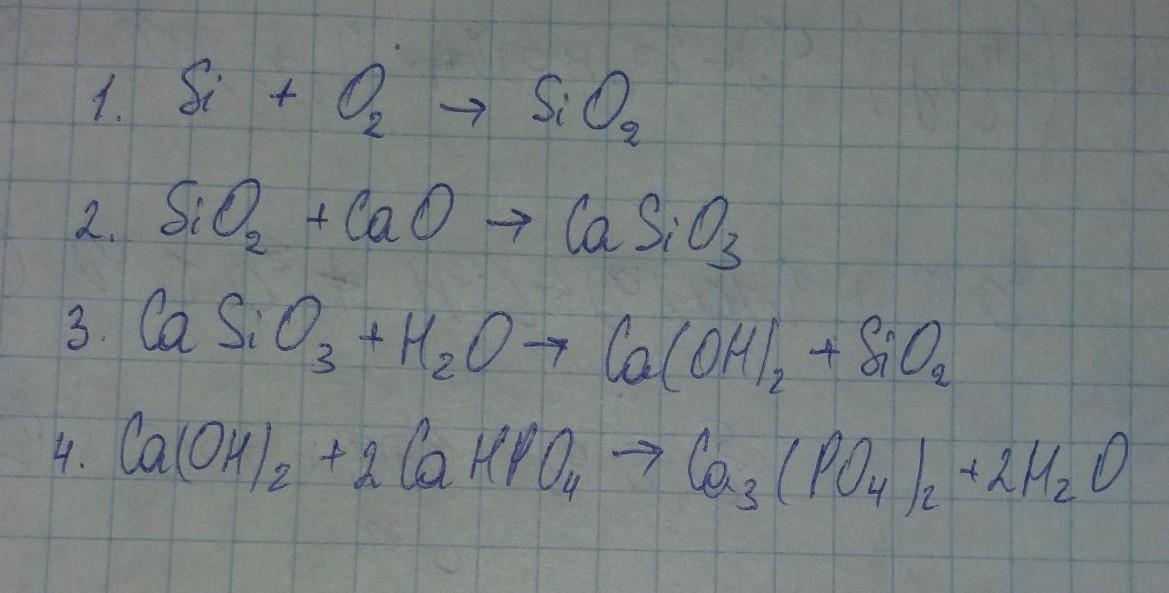 1. Si + O₂ → SiO₂
2. SiO₂ + CaO → CaSiO₃
3. CaSiO₃ + H₂O → Ca(OH)₂ + SiO₂
4. Ca(OH)₂ + 2CaHPO₄ → Ca₃(PO₄)₂ + 2H₂O